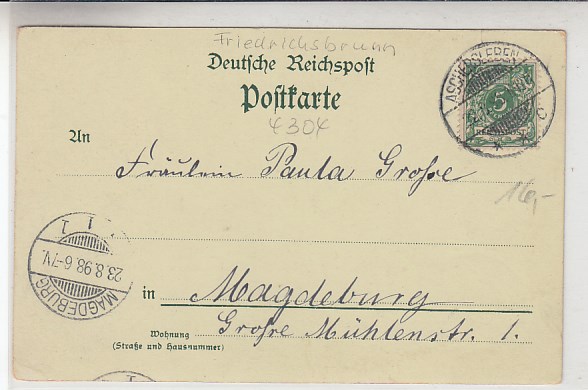 Friedrichsbrunn
Deutsche Reichspost
Postkarte
4304
An
Fräulein Paula Große
16,-
in Magdeburg
Wohnung
(Straße und Hausnummer)
Große Mühlenstr. 1.
ASCHERSLEBEN
C
5
REICHSPOST
MAGDEBURG
23.8.98.6-7N.
1